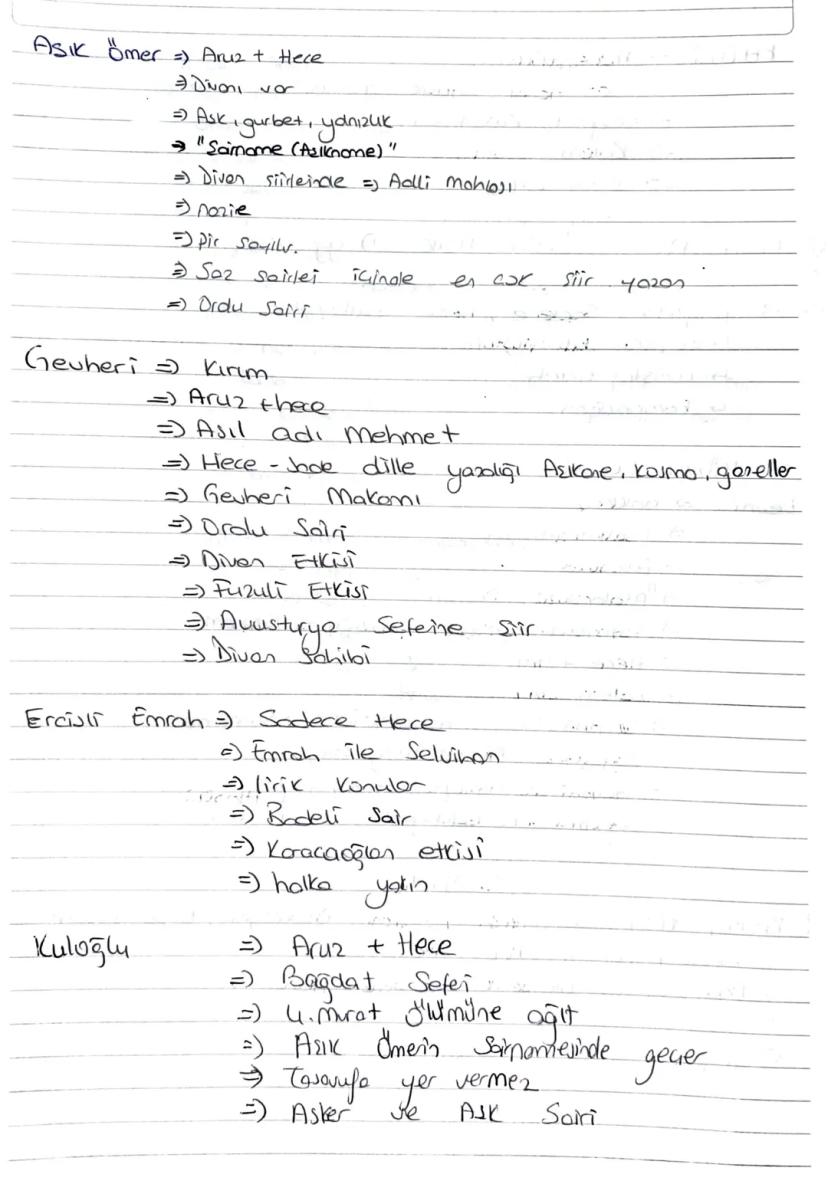 Aşık Ömer => Aruz + Hece
=> Divanı var
=> Aşk, gurbet, yalnızlık
=> "Şairname (Aşıkname)"
=> Divan şiirleinde => Adli Mahlası
=> nazire
=> pir sayılır.
=> Saz şairlei içinde en çok şiir yazan
=> Ordu Şairi
Gevheri => Kırım
=> Aruz + hece
=> Asıl adı Mehmet
=> Hece - Sade dille yazdığı Aşıkane, koşma, gazeller
=> Gevheri Makamı
=> Ordu Şairi
=> Divan Etkisi
=> Fuzuli Etkisi
=> Avusturya Seferine Şiir
=> Divan Sahibi
Ercişli Emrah => Sadece Hece
=> Emrah ile Selvihan
=> lirik konular
=> Badeli Şair
=> Karacaoğlan etkisi
=> halka yakın
Kuloğlu => Aruz + Hece
=> Bağdat Seferi
=> 4. Murat ölümüne ağıt
=> Aşık Ömerin Şairnamesinde geçer
=> Tasavufa yer vermez
=> Asker ve Aşk Şairi